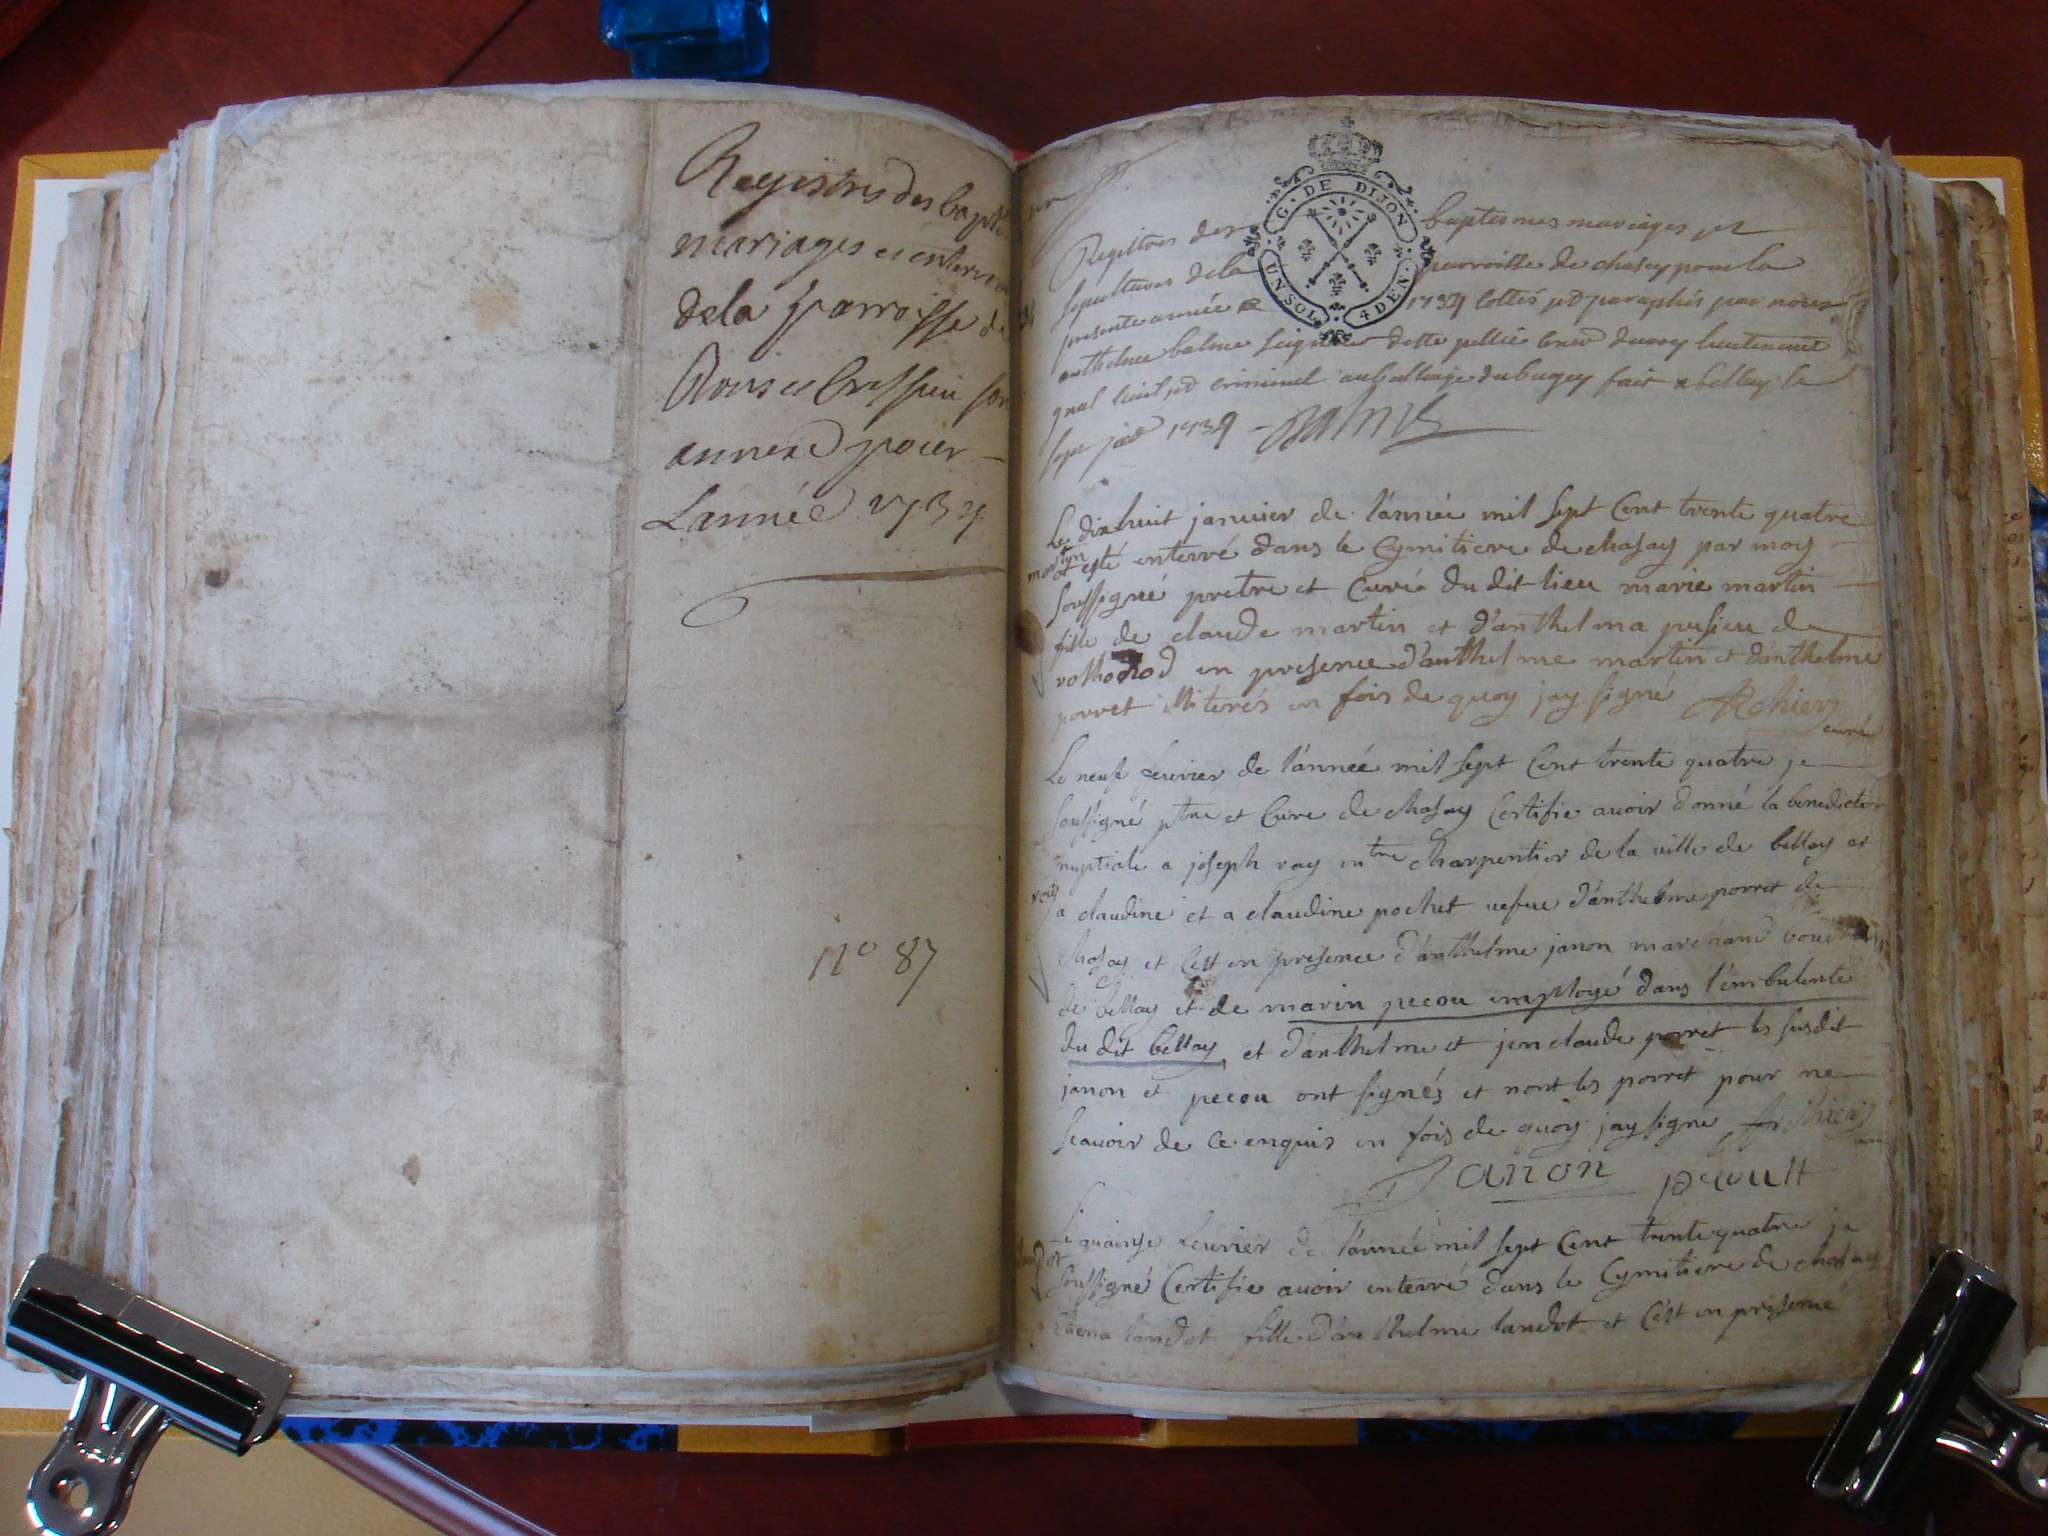 Registres des bapt
mariages et enterre
dela parroisse de
Rois et Cressieu son
annexe pour
Lannée 1734
no 87
G. DE DIJON
UN SOL 4 DEN.
Registres des baptesmes mariages et
sepultures dela parroisse de chasey pour la
presente année 1734 cottés et paraphés par nous
anthelme balme seigneur
gnal civil et criminel au balliage du bugey fait a belley le
1734 Balme
Le dixhuit janvier de l'année mil sept Cent trente quatre
martin
at esté enterré dans le Cymitiere de chasay par moy
soussigné pretre et Curé du dit lieu marie martin
fille de claude martin et d'anthelma pusieu de
rothonod en presence d'anthelme martin et d'anthelme
porret illiterés en fois de quoy jay signé Rchier
curé
Le neuf feuvier de l'année mil sept Cent trente quatre je
soussigné ptre et Cure de chasay Certifie avoir donné la benediction
nuptiale a joseph ray mtre charpentier de la ville de bellay et
ray
a claudine et a claudine pochet vefve d'anthelme porret de
chasay et C'est en presence d'anthelme janon marchand
de bellay et de marin pecou employé dans l'embulente
du dit bellay et d'anthelme et jen claude porret les susdit
janon et pecou ont signés et nont les porret pour ne
scavoir de ce enquis en fois de quoy jay signe Rchier
Janon pecoult
Le quainse feuvier de l'année mil sept Cent trente quatre je
landot
soussigné Certifie avoir enterré dans le Cymitiere de chasay
landot fille d'anthelme landot et C'est en presence